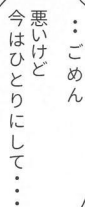 ・・ごめん
悪いけど
今はひとりにして・・・